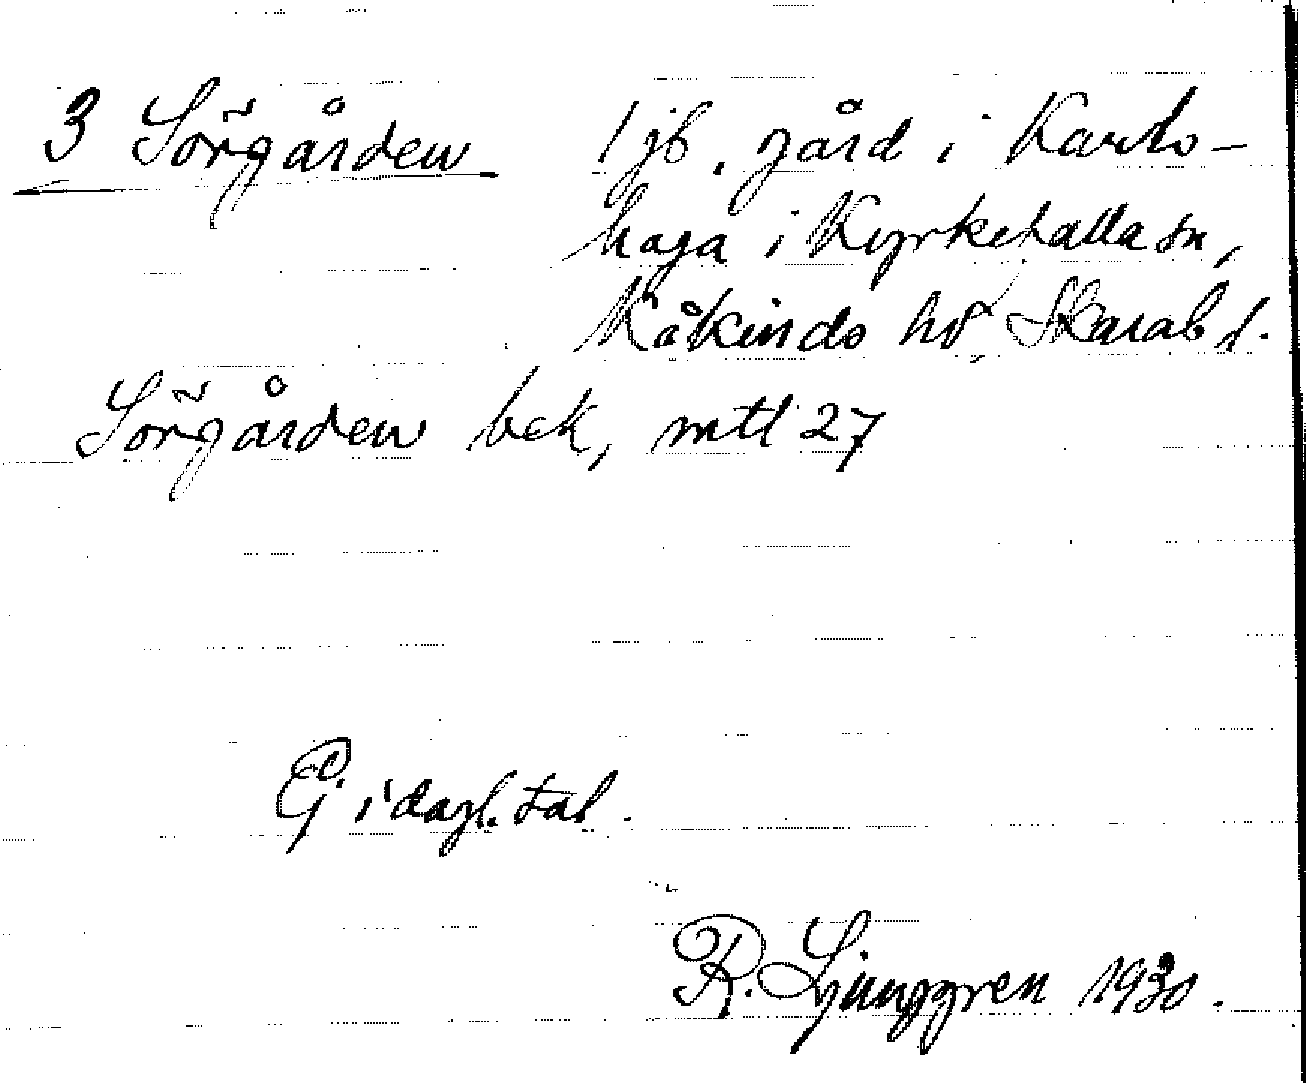 3 Sörgården 1 jb. gård i Karls-
haga i Kyrkefalla sn,
Kåkinds hd, Skarab l.
Sörgården bek, mtl 27
Ej i dagl. tal.
R. Ljunggren 1930.